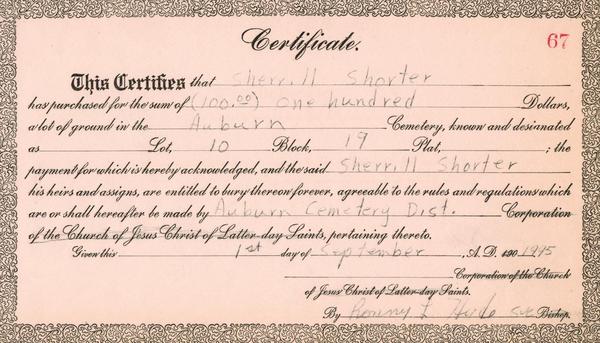 Certificate.
67
This Certifies that Sherrill Shorter
has purchased for the sum of (100.00) one hundred Dollars,
a lot of ground in the Auburn Cemetery, known and desianated
as Lot, 10 Block, 19 Plat, ; the
payment for which is hereby acknowledged, and the said Sherrill Shorter
his heirs and assigns, are entitled to bury thereon forever, agreeable to the rules and regulations which
are or shall hereafter be made by Auburn Cemetery Dist. Corporation
of the Church of Jesus Christ of Latter-day Saints, pertaining thereto.
Given this 1st day of September, A.D. 190 1975
Corporation of the Church
of Jesus Christ of Latter-day Saints.
By Ronny L Bishop.